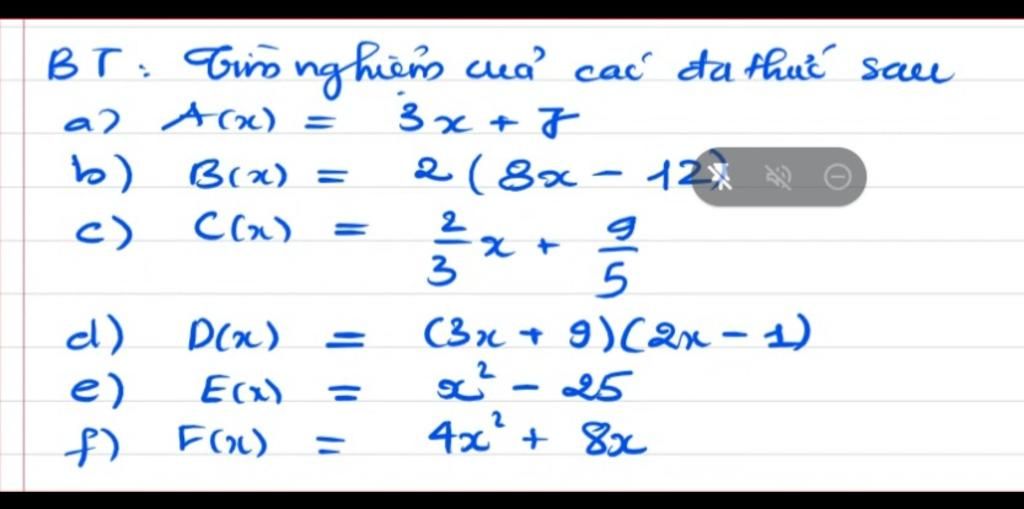 BT: Tìm nghiệm của các đa thức sau
a) A(x) = 3x + 7
b) B(x) = 2(8x - 12)
c) C(x) = 2/3 x + 9/5
d) D(x) = (3x + 9)(2x - 1)
e) E(x) = x² - 25
f) F(x) = 4x² + 8x